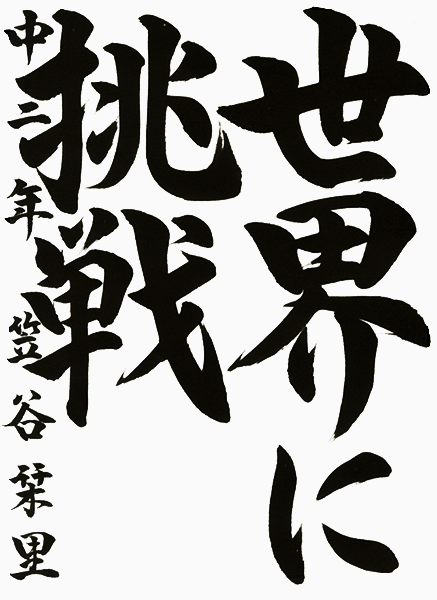 世界に
挑戦
中二年 笠谷栞里